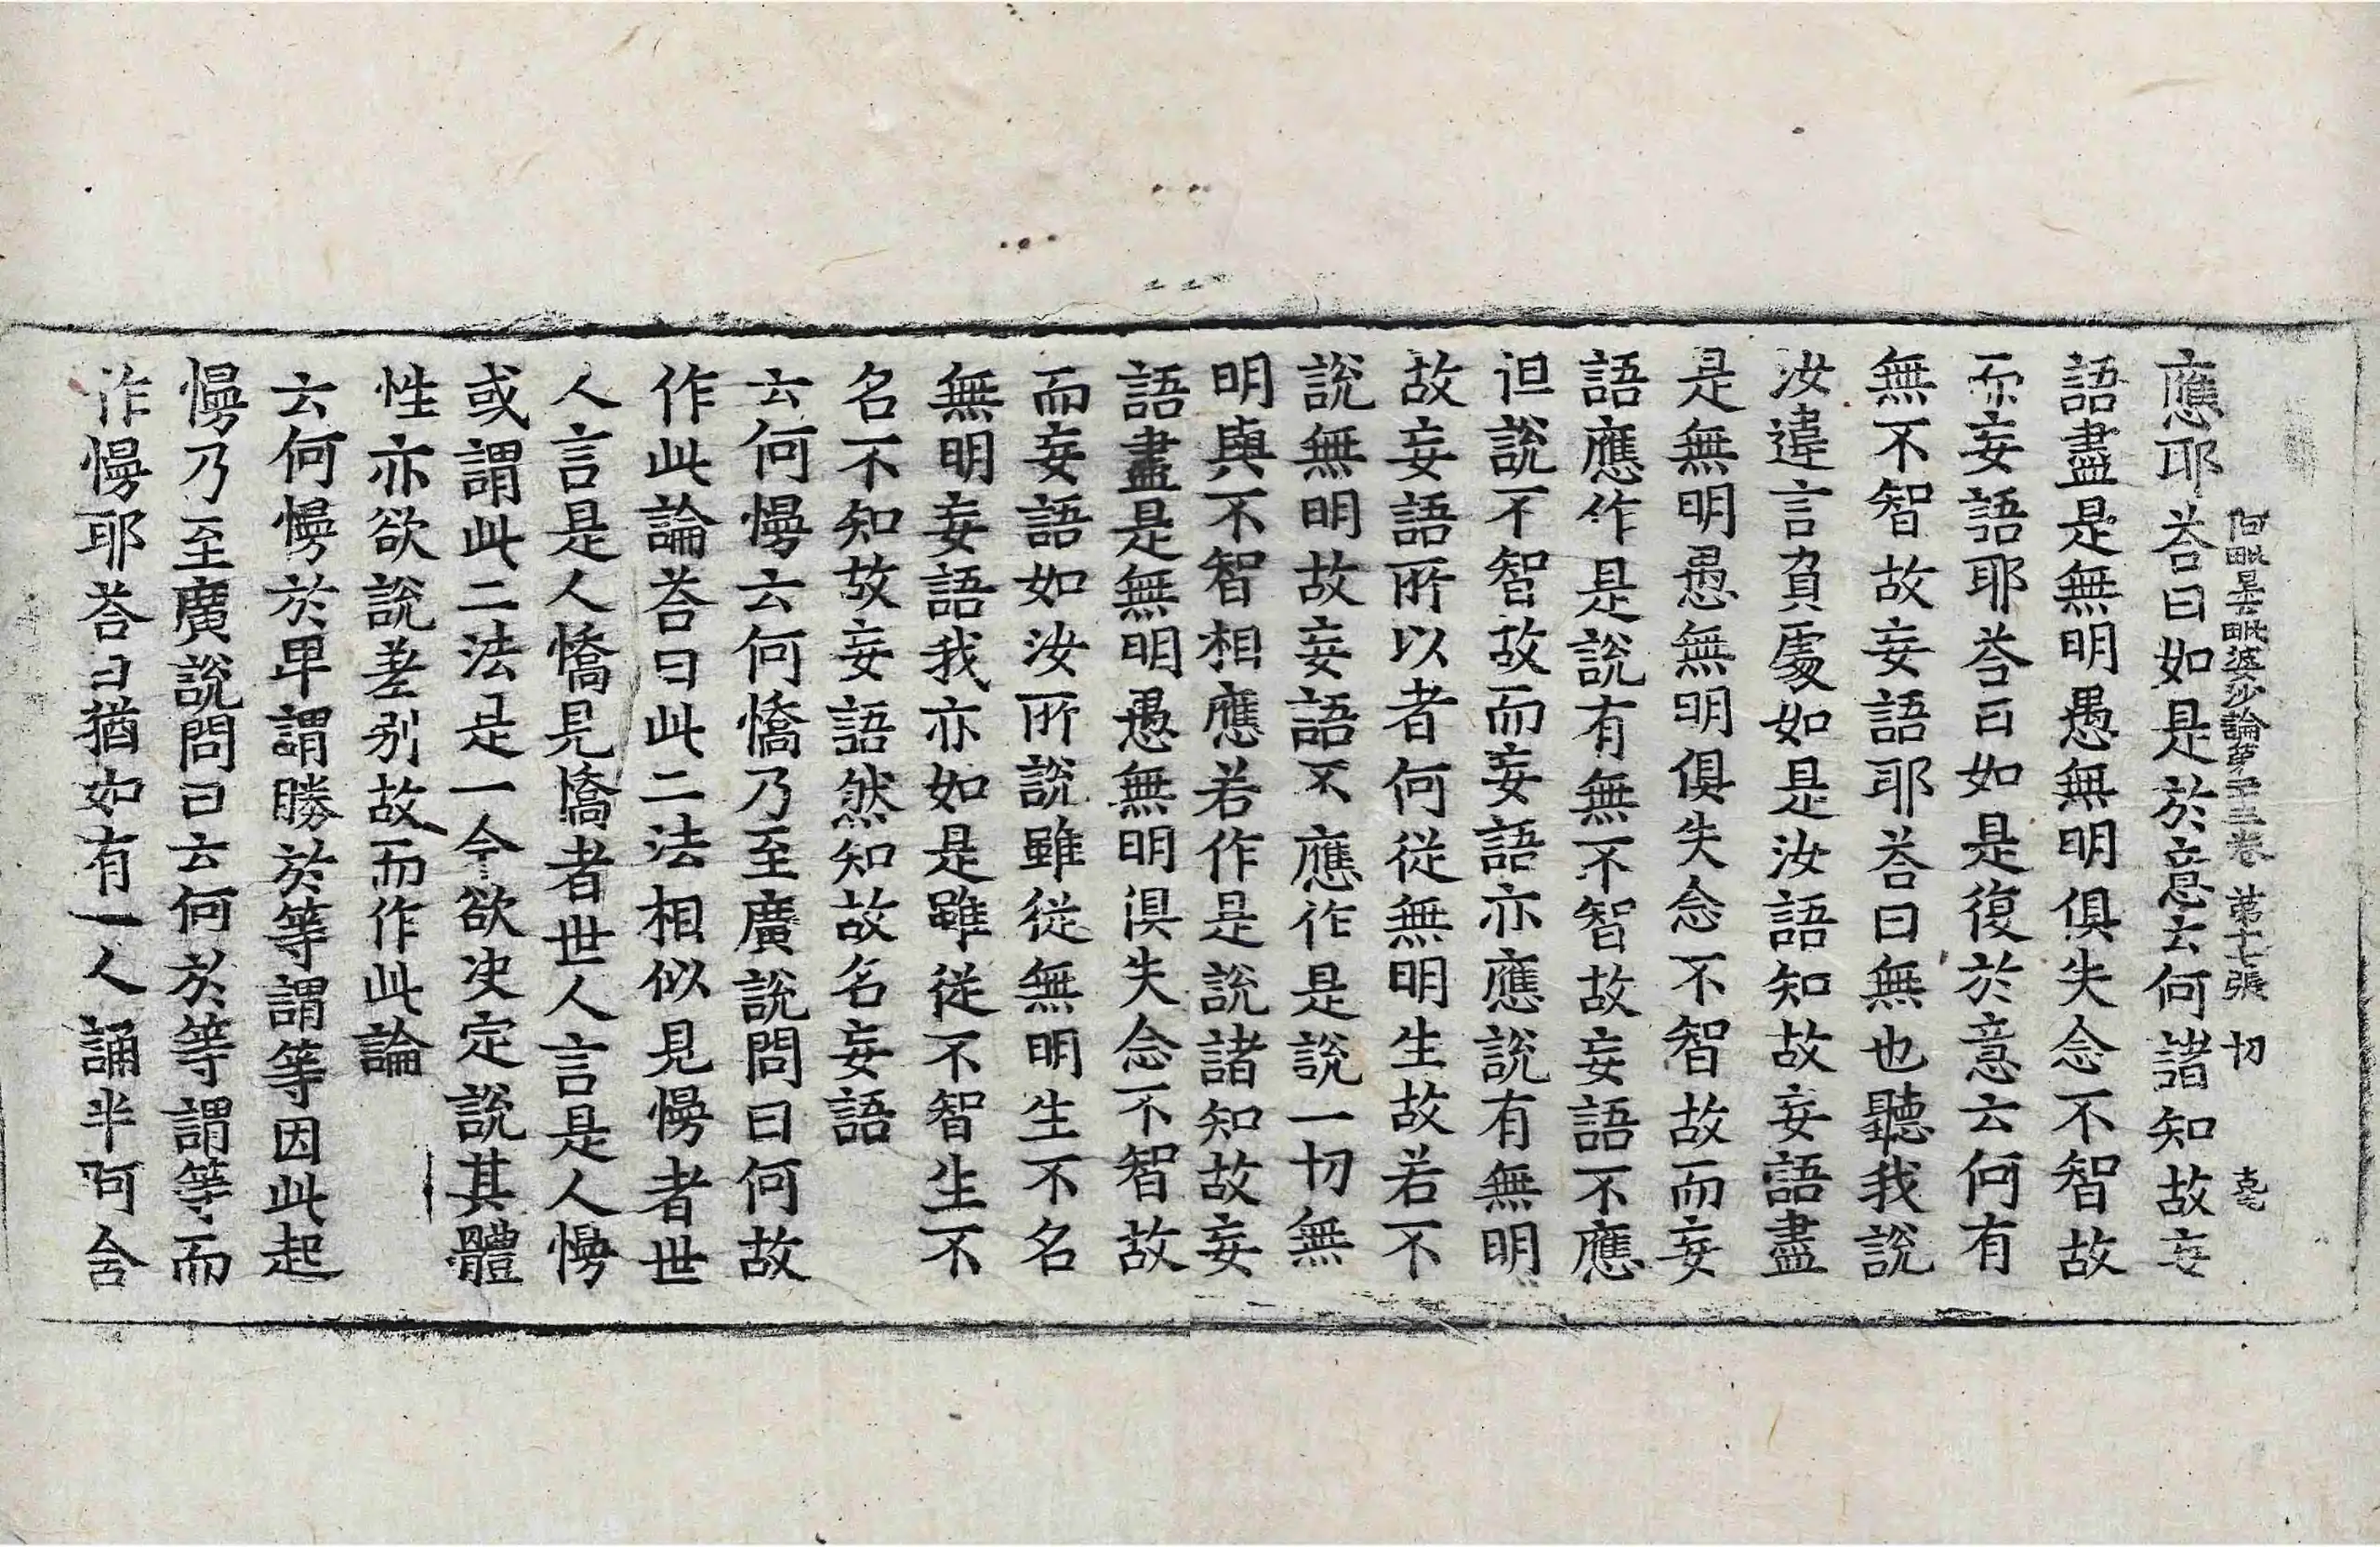 阿毗曇毗婆沙論第二十三卷 第十七張 切
應耶荅曰如是於意云何諸知故妄
語盡是無明愚無明俱失念不智故
而妄語耶荅曰如是復於意云何有
無不智故妄語耶荅曰無也聽我說
汝違言負處如是汝語知故妄語盡
是無明愚無明俱失念不智故而妄
語應作是說有無不智故妄語不應
但說不智故而妄語亦應說有無明
故妄語所以者何從無明生故若不
說無明故妄語不應作是說一切無
明與不智相應若作是說諸知故妄
語盡是無明愚無明俱失念不智故
而妄語如汝所說雖從無明生不名
無明妄語我亦如是雖從不智生不
名不知故妄語然知故名妄語
云何慢云何憍乃至廣說問曰何故
作此論荅曰此二法相似見慢者世
人言是人憍見憍者世人言是人慢
或謂此二法是一今欲决定說其體
性亦欲說差別故而作此論
云何慢於卑謂勝於等謂等因此起
慢乃至廣說問曰云何於等謂等而
作慢耶荅曰猶如有一人誦半阿含